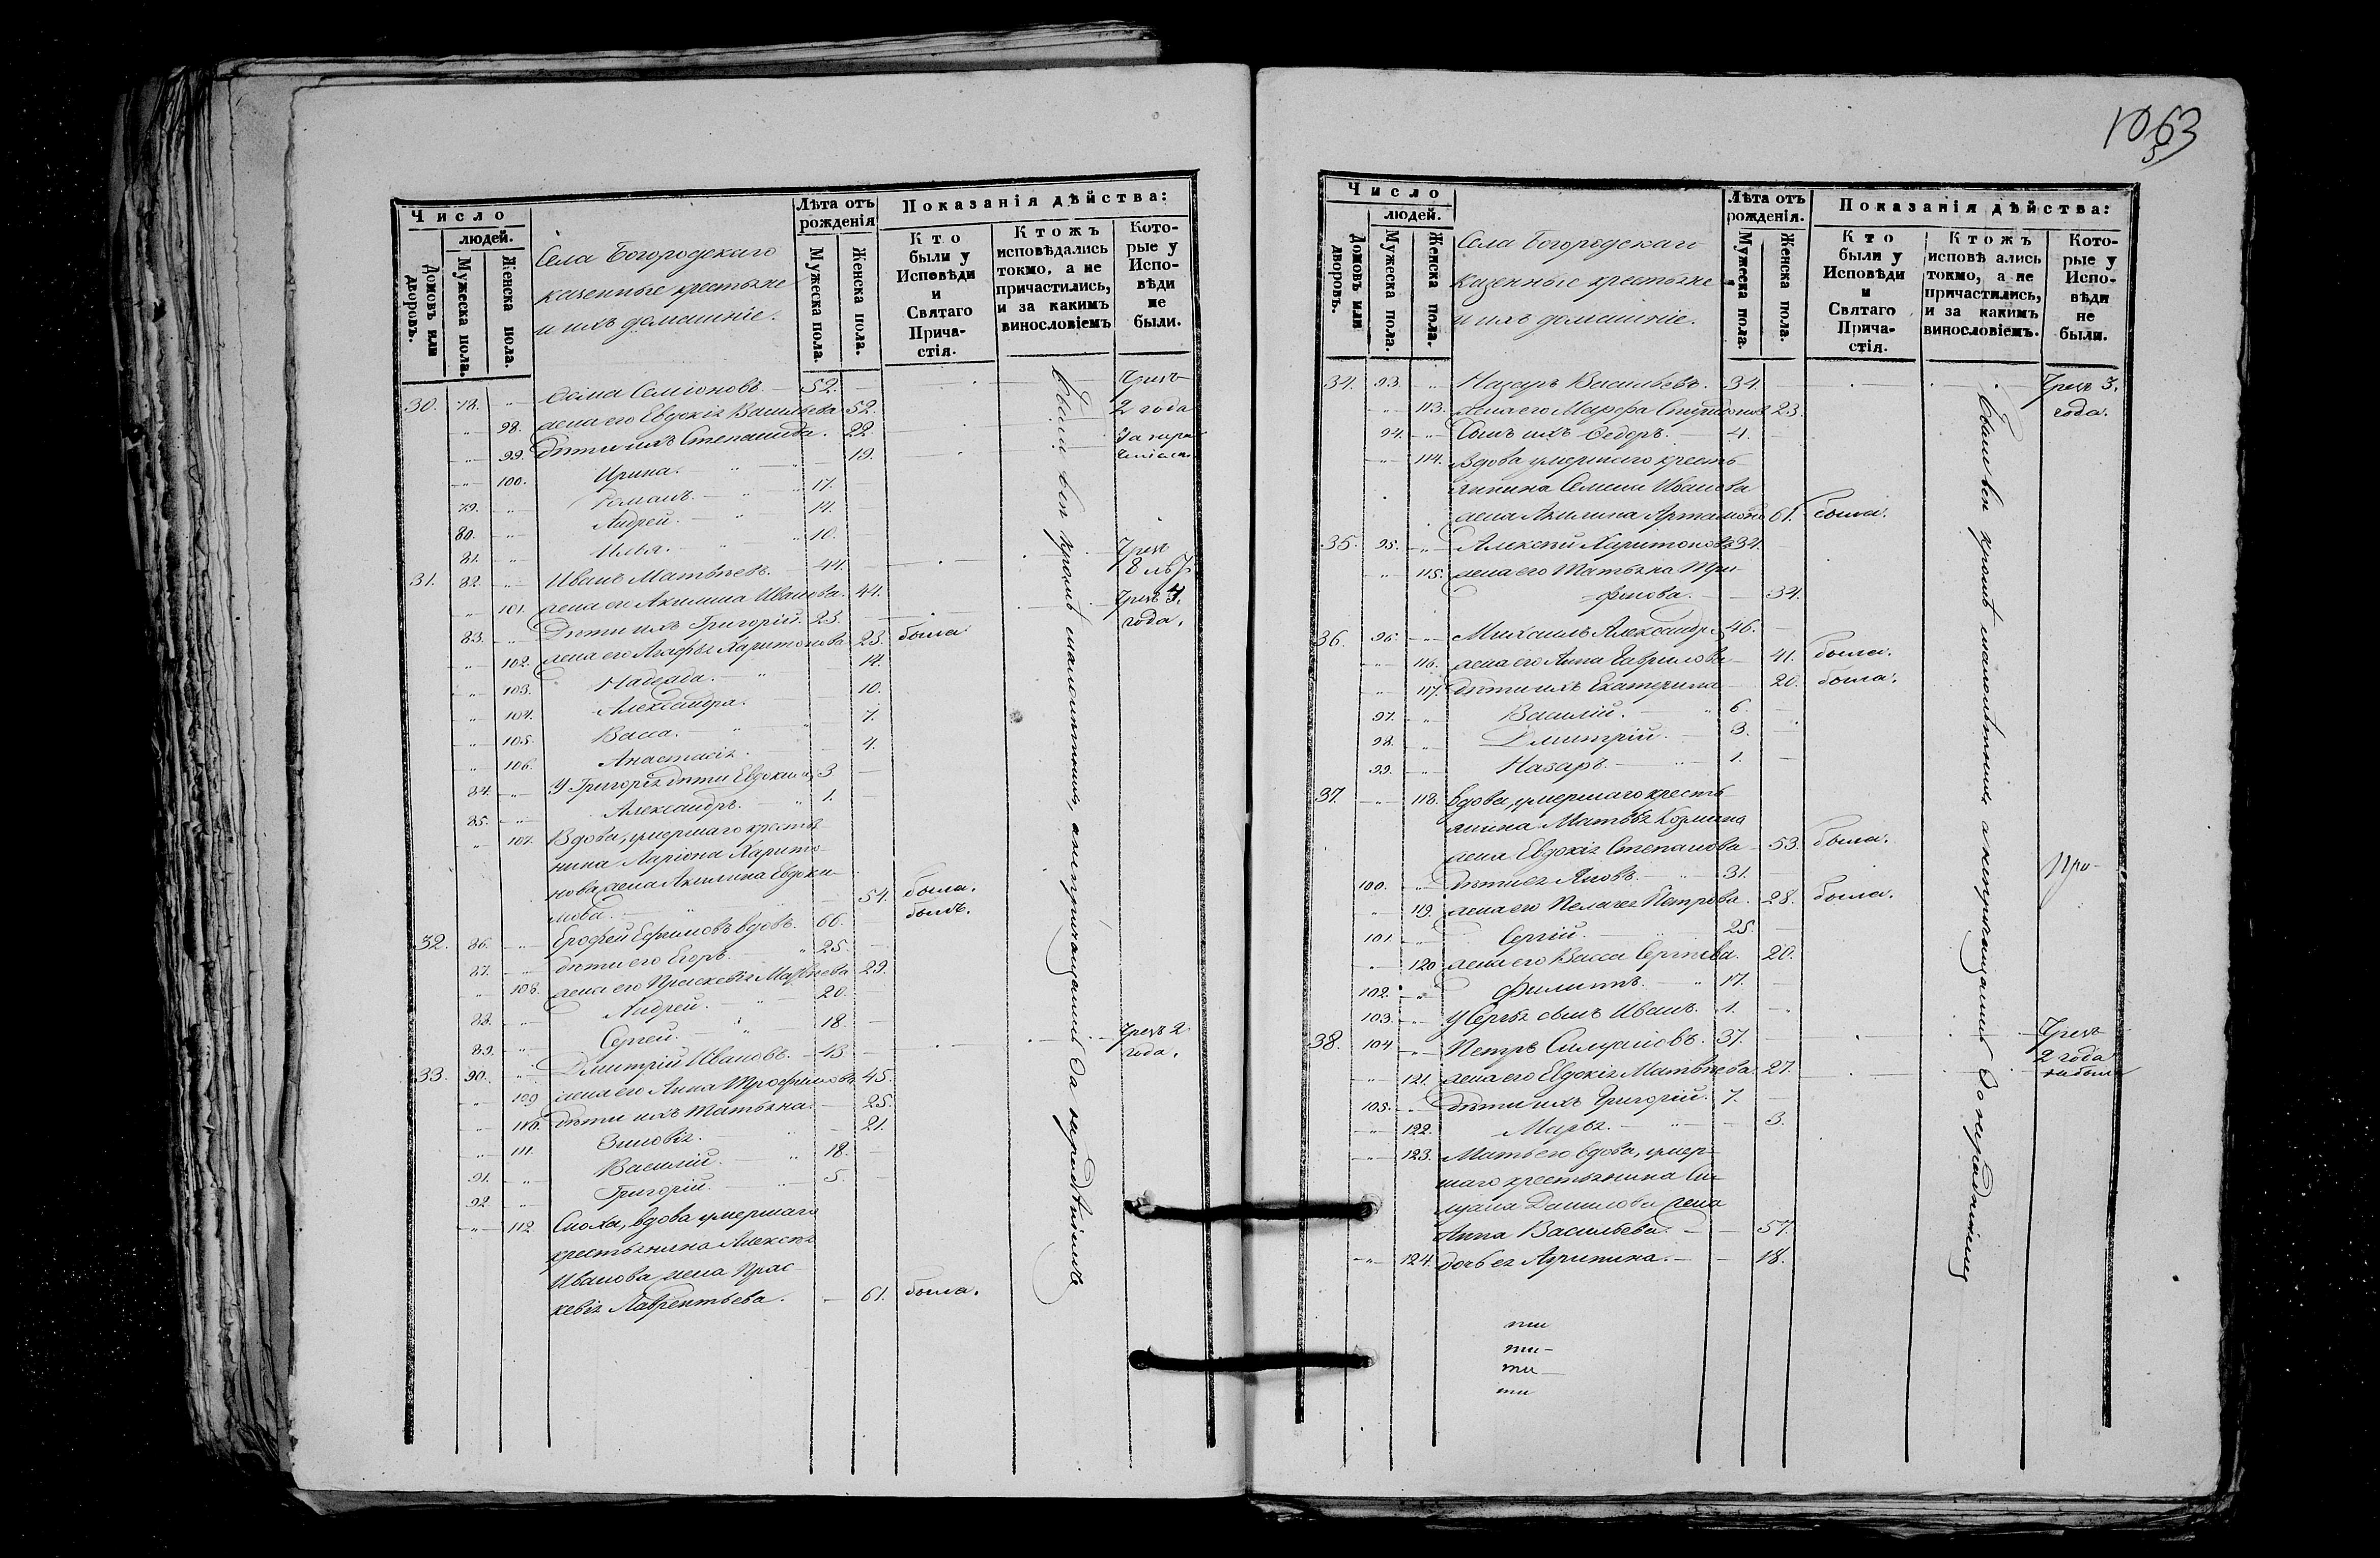 1063
5
Число
людей.
Домовъ или дворовъ.
Мужеска пола.
Женска пола.
Села Богородскаго
казенные крестьяне
и ихъ домашніе.
Лѣта отъ рожденія
Мужеска пола.
Женска пола.
Показанія дѣйства:
Кто были у Исповѣди и Святаго Причастія.
Ктожъ исповѣдались токмо, а не причастились, и за какимъ винословіемъ
Которые у Исповѣди не были.
30. 78. Семіоновъ 52. Чрезъ
98. жена его Евдокія Васильева 52. 2 года
99. дѣти ихъ Степанида. 22. за нера-
100. Ирина. 19.
79. Романъ. 17.
80. Андрей. 14.
81. Илья. 10.
31. 82. Иванъ Матвѣевъ. 44. Чрезъ 8 лѣтъ
101. жена его Акилина Иванова. 44. Чрезъ
83. Дѣти ихъ Григорій. 23. года.
102. жена его Агафья Харитонова 23. была
103. Надежда. 14.
104. Александра. 10.
105. Васса. 7.
106. Анастасія. 4.
84. У Григорія дѣти Евдокимъ 3
85. Александръ. 1.
107. Вдова, умершаго крестья-
нина Ларіона Харито-
нова жена Акилина Евдоки-
мова. 54. была.
32. 86. Ерофей Ефимовъ вдовъ. 66. былъ.
87. дѣти его Егоръ. 25.
108. жена его Праскевія Матвѣева 29.
88. Андрей. 20.
89. Сергей. 18.
33. 90. Дмитрій Ивановъ. 43 Чрезъ 2 года.
109 жена его Анна Трофимова 45.
110. дѣти ихъ Татьяна. 25.
111. Зиновія. 21.
91. Василій. 18.
92. Григорій. 5.
112 Сноха, вдова умершаго
крестьянина Алексѣя
Иванова жена Прас-
кевія Лаврентьева. 61. была.
Были вси кромѣ малолѣтнихъ, а непричащались за нерадѣніемъ
Число
людей.
Домовъ или дворовъ.
Мужеска пола.
Женска пола.
Села Богородскаго
казенные крестьяне
и ихъ домашніе.
Лѣта отъ рожденія.
Мужеска пола.
Женска пола.
Показанія дѣйства:
Кто были у Исповѣди и Святаго Причастія.
Ктожъ исповѣ ались токмо, а не причастились, и за какимъ винословіемъ.
Которые у Исповѣди не были.
34. 93. Назаръ Васильевъ. 34. Чрезъ 3.
113. жена его Марфа Спиридонова 23. года.
94. Сынъ ихъ Ѳедоръ. 4.
114. Вдова умершаго кресть-
янина Семена Иванова
жена Акилина Артамонова 61. была.
35. 95. Алексѣй Харитоновъ 34.
115. жена его Татьяна Три-
фонова. 34.
36. 96. Михаилъ Александр. 46.
116. жена его Анна Гаврилова 41. была.
117. дѣти ихъ Екатерина 20. была.
97. Василій. 6.
98. Дмитрій. 3.
99. Назаръ. 1.
37. 118. Вдова, умершаго кресть-
янина Матвѣя Козмина
жена Евдокія Степанова 53. была.
100. дѣти ея Яковъ 31. Про-
119. жена его Пелагея Петрова. 28. была.
101. Сергій. 25.
120 жена его Васса Сергѣева. 20.
102. Филиппъ. 17.
103. У Сергѣя сынъ Иванъ. 1.
38. 104 Петръ Силуановъ. 37. Чрезъ
121. жена его Евдокія Матвѣева. 27. 2 года
105. дѣти ихъ Григорій. 7. не были
122. Марья. 3.
123. Мать его вдова, умер-
шаго крестьянина Си-
луана Данилова жена
Анна Васильева. 57.
124. дочь ея Агрипина. 18.
Были вси кромѣ малолѣтнихъ а непричащались за нерадѣніемъ
ти
ти-
ти
ти